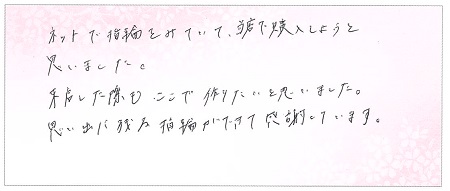 ネットで指輪をみていて、当店で購入しようと
思いました。
来店した際も ここで 作りたいと思いました。
思い出に残る 指輪ができて感謝しています。